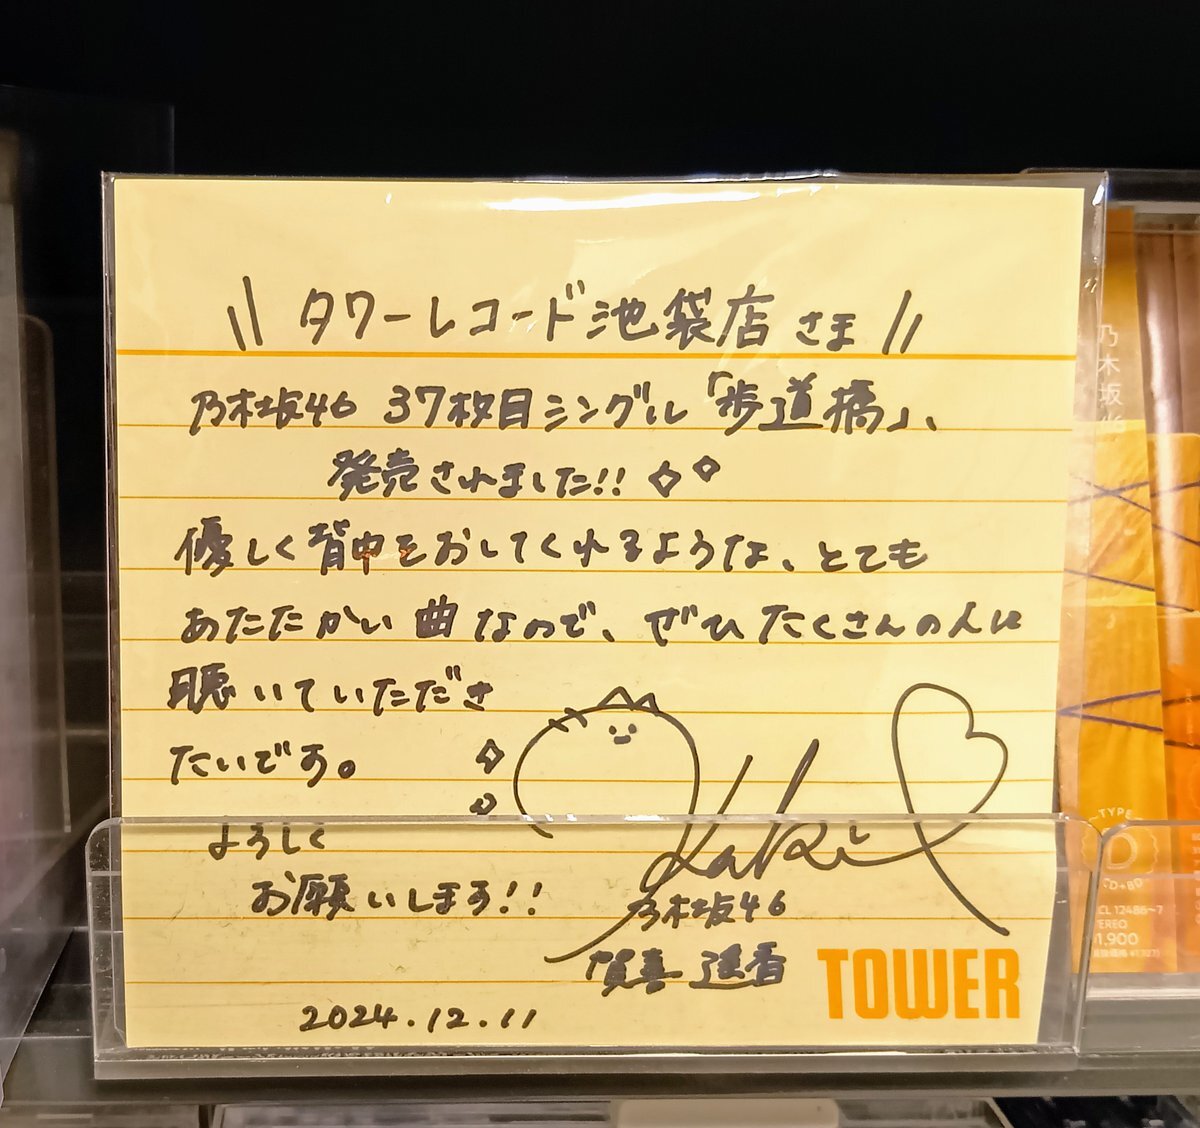 \\ タワーレコード池袋店さま //
乃木坂46 37枚目シングル「歩道橋」、
発売されました!!
優しく背中をおしてくれるような、とても
あたたかい曲なので、ぜひたくさんの人に
聴いていただき
たいです。
よろしく
お願いします!!
Kaki
乃木坂46
賀喜 遥香
2024.12.11
TOWER
乃木坂
TYPE
D
CD+BD
12486~7
1,900